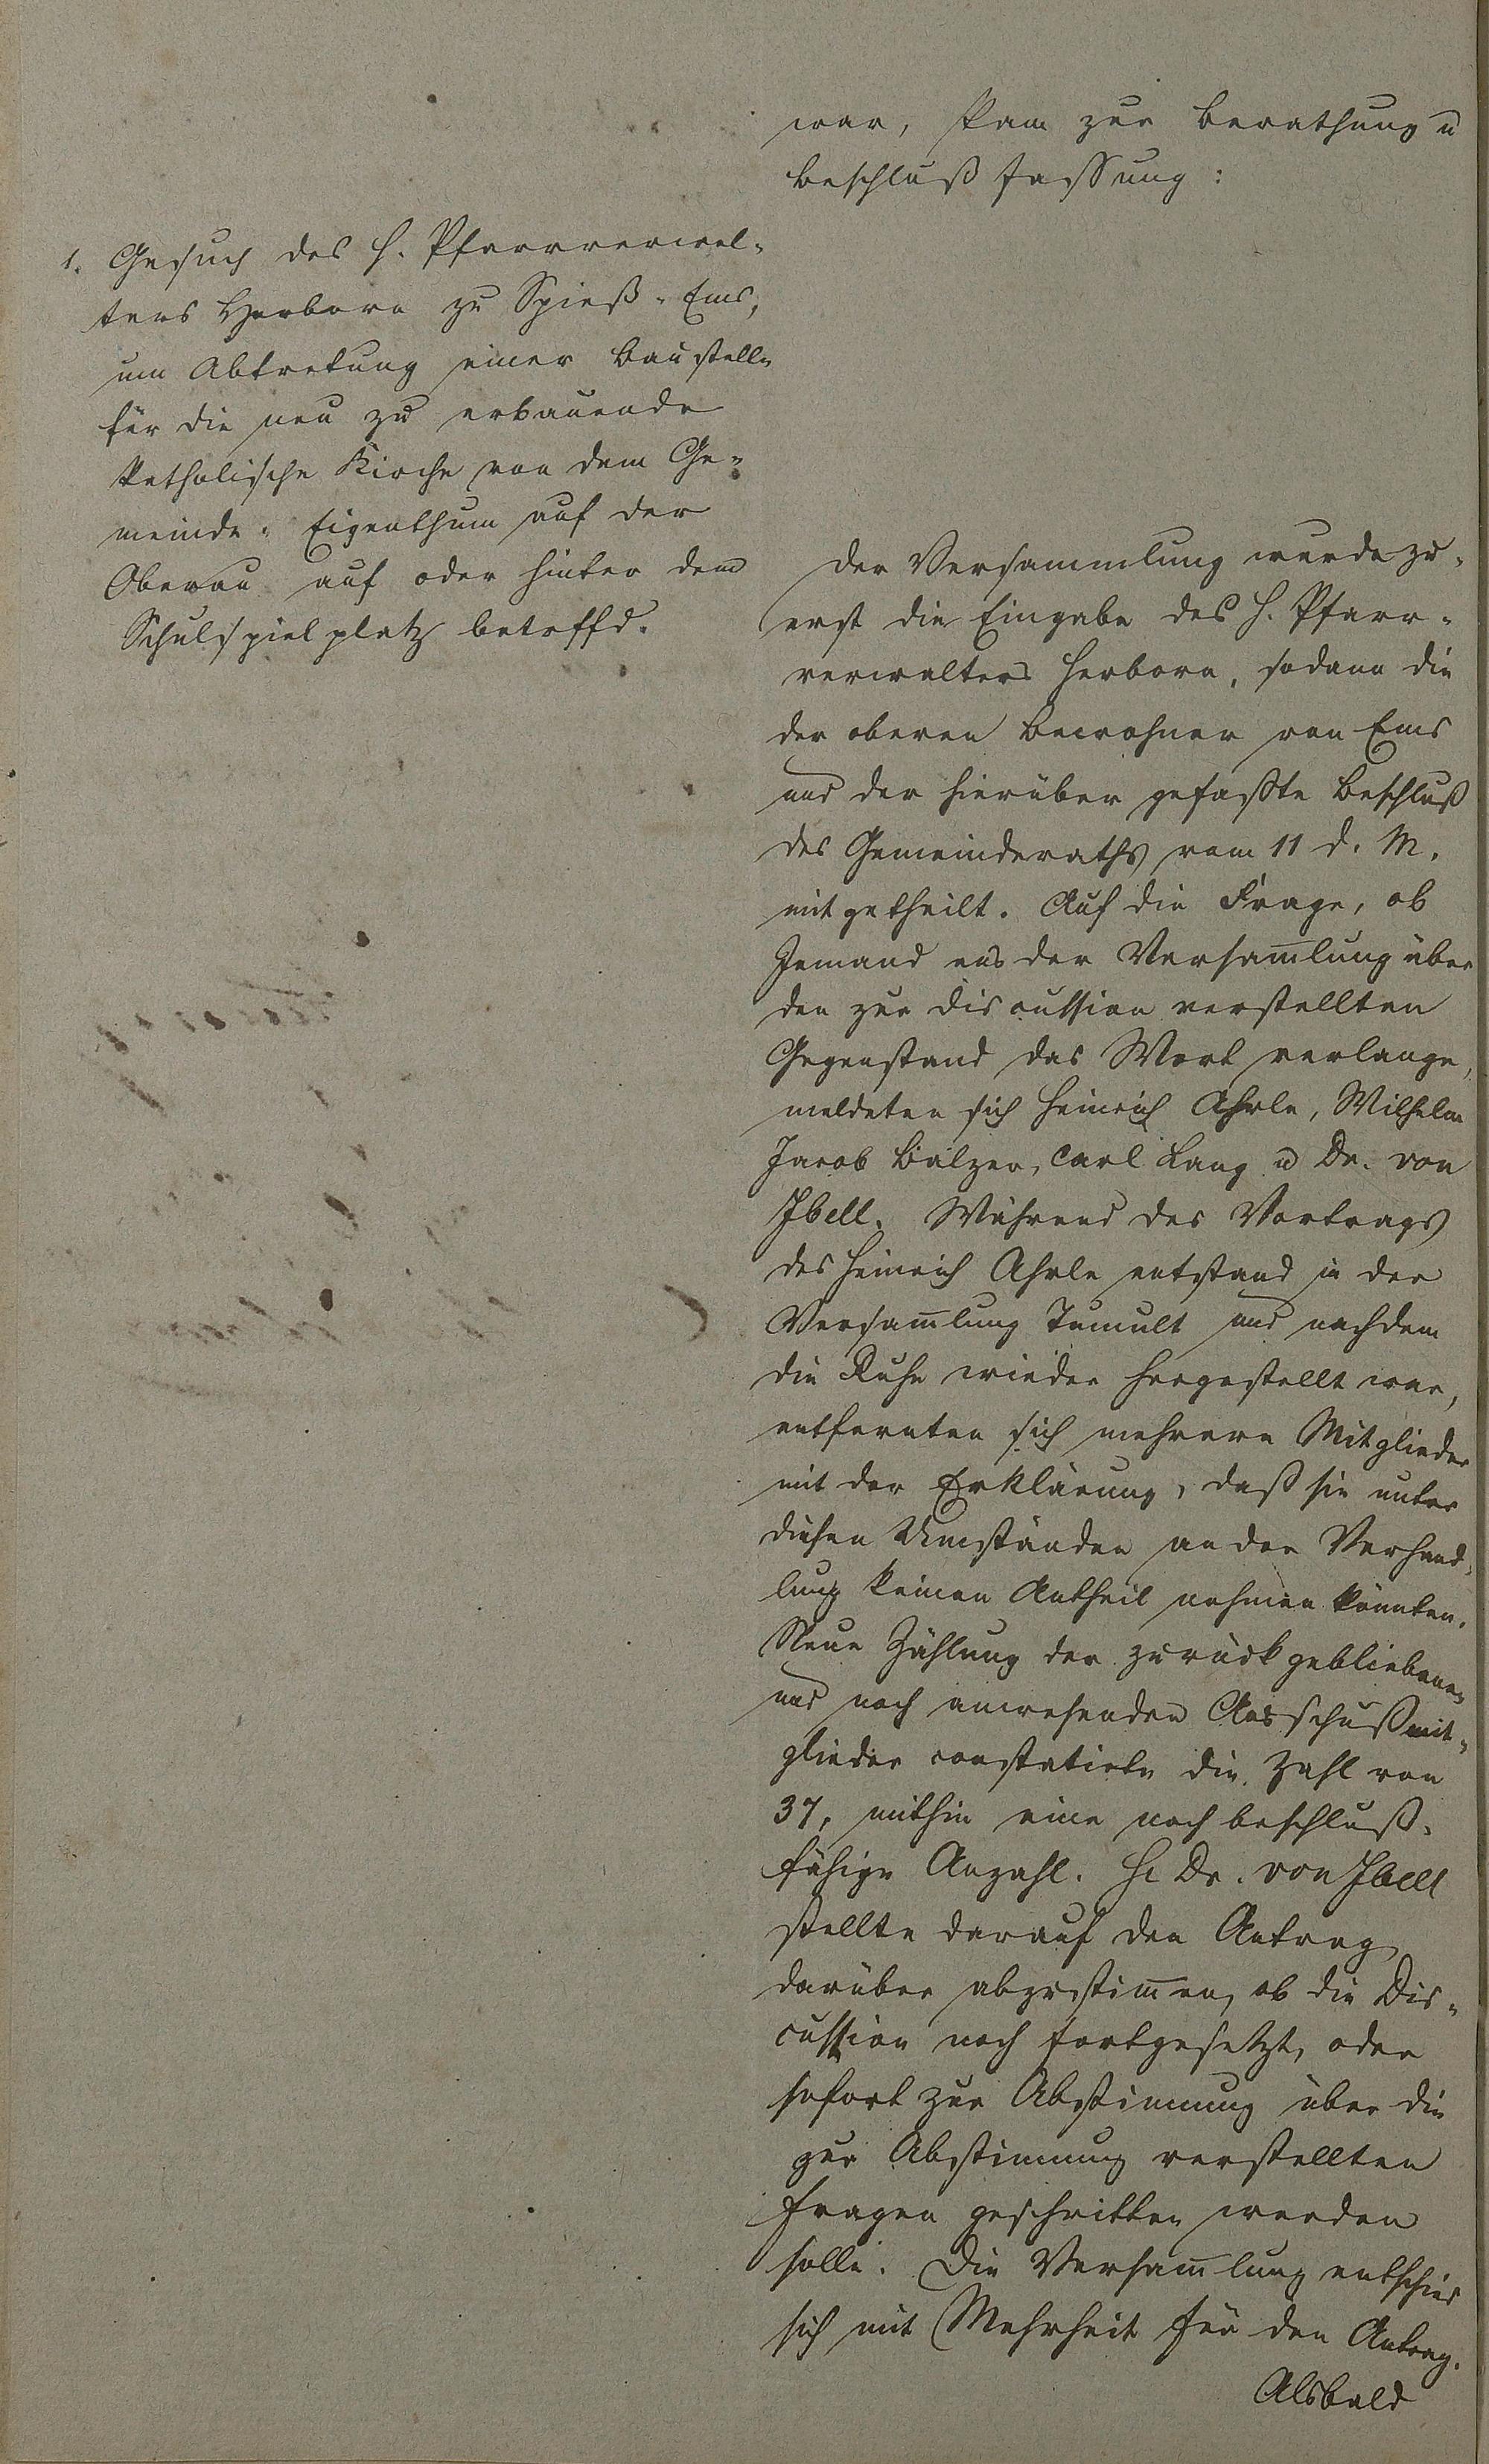 war, kam zur Berathung u
Beschlußfassung:
1. Gesuch des H. Pfarrverwal-
ters Herborn zu Spieß-Ems,
um Abtretung einer Baustelle
für die neu zu erbauende
katholische Kirche von dem Ge-
meinde-Eigenthum auf der
Oberau auf oder hinter dem
Schulspielplatz betreffd.
Der Versammlung wurde zu-
erst die Eingabe des H. Pfarr-
verwalters Herborn, sodann die
der oberen Bewohner von Ems
und der hierüber gefaßte Beschluß
des Gemeinderaths vom 11 d. M.
mitgetheilt. Auf die Frage, ob
Jemand aus der Versam̅lung über
den zur Discussion verstellten
Gegenstand das Wort verlange,
meldeten sich Heinrich Ahrle, Wilhelm
Jacob Balzer, Carl Lang u Dr. von
Ibell. Während des Vortrags
des Heinrich Ahrle entstand in der
Versam̅lung Tumult und nachdem
die Ruhe wieder hergestellt war,
entfernten sich mehrere Mitglieder
mit der Erklärung, daß sie unter
diesen Umständen an der Verhand-
lung keinen Antheil nehmen könnten.
Neue Zählung der zurückgebliebenen
und noch anwesenden Ausschußmit-
glieder constatirte die Zahl von
37, mithin eine noch beschluß-
fähige Anzahl. H. Dr. von Ibell
stellte darauf den Antrag
darüber abzustim̅en, ob die Dis-
cussion noch fortgesetzt, oder
sofort zur Abstimmung über die
zur Abstimmung verstellten
Fragen geschritten werden
solle. Die Versam̅lung entschied
sich mit Mehrheit für den Antrag.
Alsbald